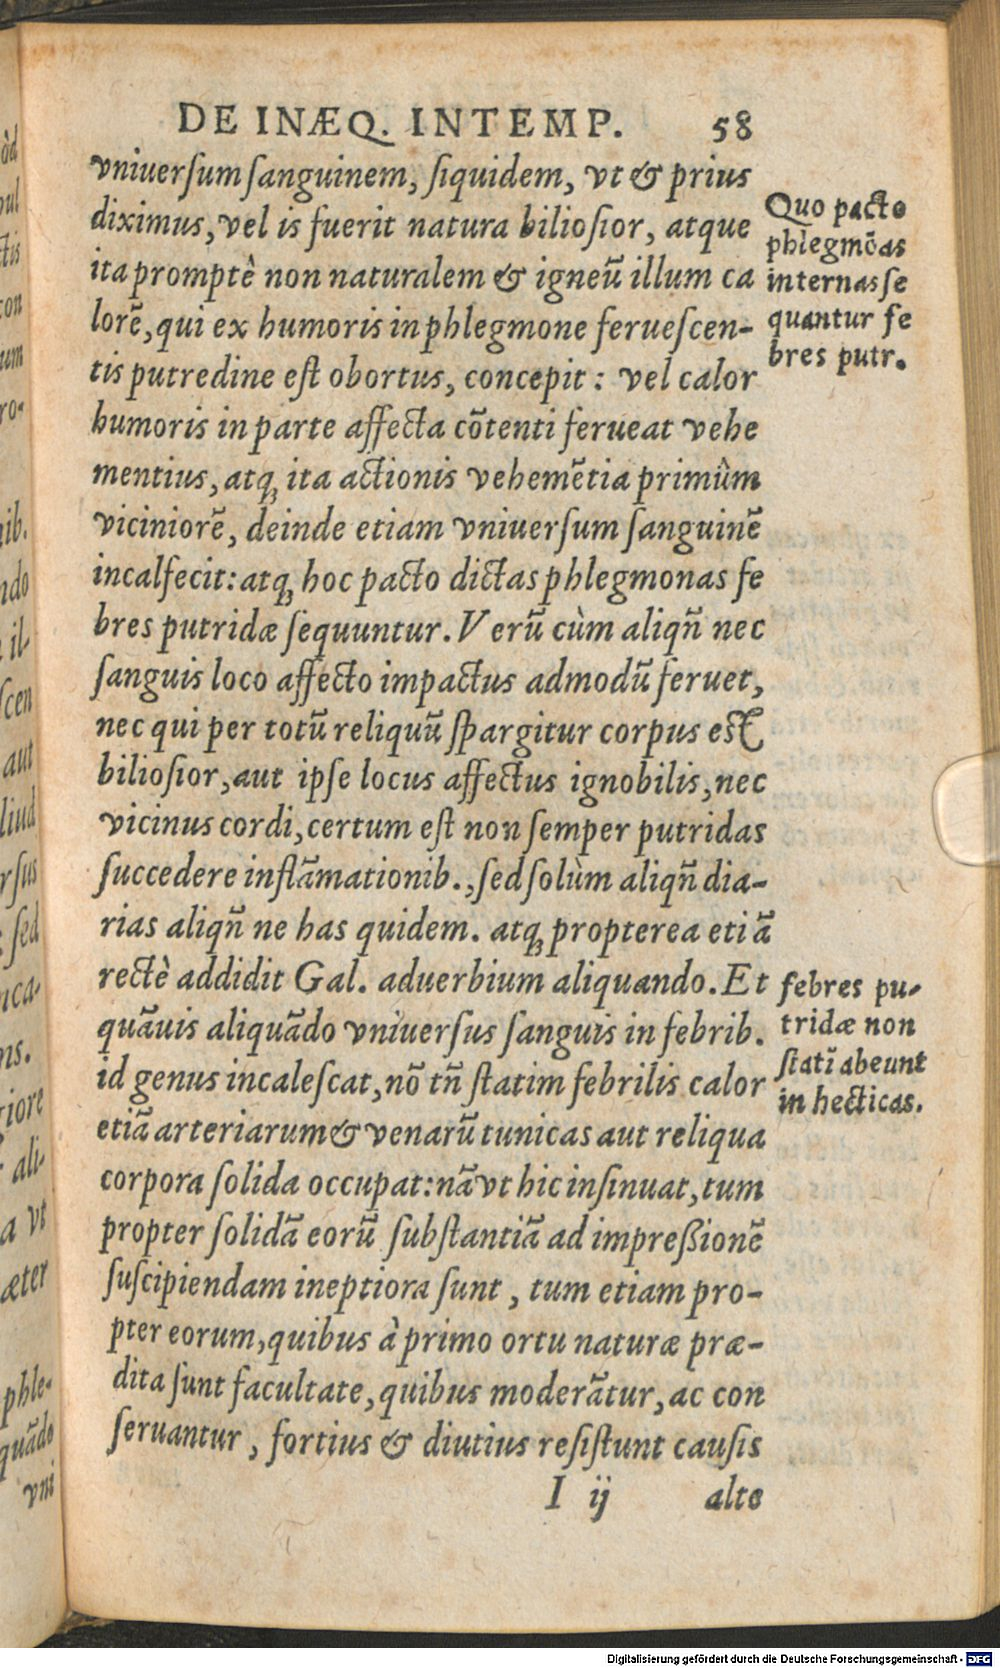 DE INÆQ. INTEMP. 58
vniuersum sanguinem, siquidem, vt & prius
diximus, vel is fuerit natura biliosior, atque
ita promptè non naturalem & igneũ illum ca
lorẽ, qui ex humoris in phlegmone feruescen-
tis putredine est obortus, concepit: vel calor
humoris in parte affecta cõtenti ferueat vehe
mentius, atq; ita actionis vehemẽtia primùm
viciniorẽ, deinde etiam vniuersum sanguinẽ
incalfecit: atq; hoc pacto dictas phlegmonas fe
bres putridæ sequuntur. Verũ cùm aliqñ nec
sanguis loco affecto impactus admodũ feruet,
nec qui per totũ reliquũ spargitur corpus est
biliosior, aut ipse locus affectus ignobilis, nec
vicinus cordi, certum est non semper putridas
succedere inflãmationib., sed solùm aliqñ dia-
rias aliqñ ne has quidem. atq; propterea etiã
rectè addidit Gal. aduerbium aliquando. Et
quãuis aliquãdo vniuersus sanguis in febrib.
id genus incalescat, nõ tñ statim febrilis calor
etiã arteriarum & venarũ tunicas aut reliqua
corpora solida occupat: nã vt hic insinuat, tum
propter solidã eorũ substantiã ad impreßionẽ
suscipiendam ineptiora sunt, tum etiam pro-
pter eorum, quibus à primo ortu naturæ præ-
dita sunt facultate, quibus moderãtur, ac con
seruantur, fortius & diutius resistunt causis
I ij alte
Quo pacto
phlegmõas
internas se
quantur fe
bres putr.
febres pu-
tridæ non
statĩ abeunt
in hecticas.
Digitalisierung gefördert durch die Deutsche Forschungsgemeinschaft - DFG